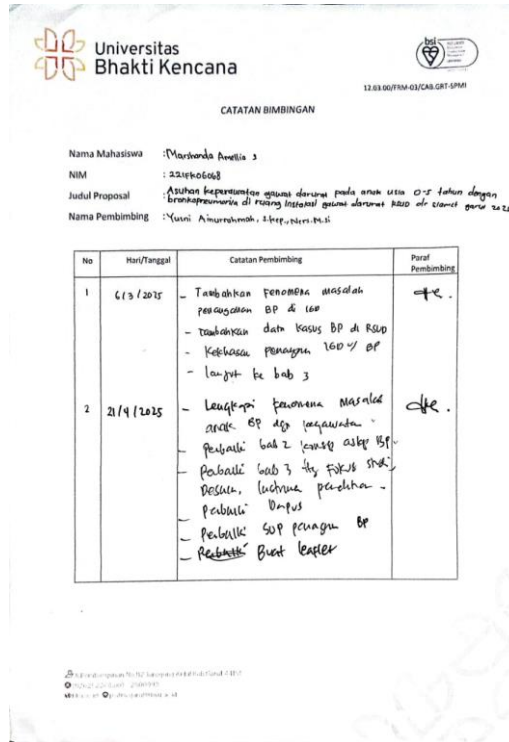 Universitas
Bhakti Kencana
bsi
12.03.00/FRM-03/CAB.GRT-SPMI
CATATAN BIMBINGAN
Nama Mahasiswa : Marshanda Amellia S
NIM : 221FK06068
Judul Proposal : Asuhan keperawatan gawat darurat pada anak usia 0-5 tahun dengan
bronkopneumonia di ruang Instalasi gawat darurat RSUD dr slamet garut 2025
Nama Pembimbing : Yusni Ainurrahmah, S.Kep., Ners. M.Si
No Hari/Tanggal Catatan Pembimbing Paraf
Pembimbing
1 6/3/2025 - Tambahkan fenomena masalah
BP di IGD
- Tambahkan data kasus BP di RSUD
- IGD BP
- lanjut ke bab 3
2 21/4/2025 - Lengkapi fenomena masalah
anak BP dgn
- Perbaiki bab 2 konsep askep BP
- Perbaiki bab 3 ttg Fokus studi,
Desain,
- Perbaiki Dapus
- Perbaiki SOP BP
- Perbaiki Buat leaflet